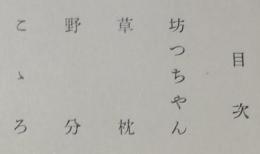 目次
坊つちやん
草枕
野分
こゝろ